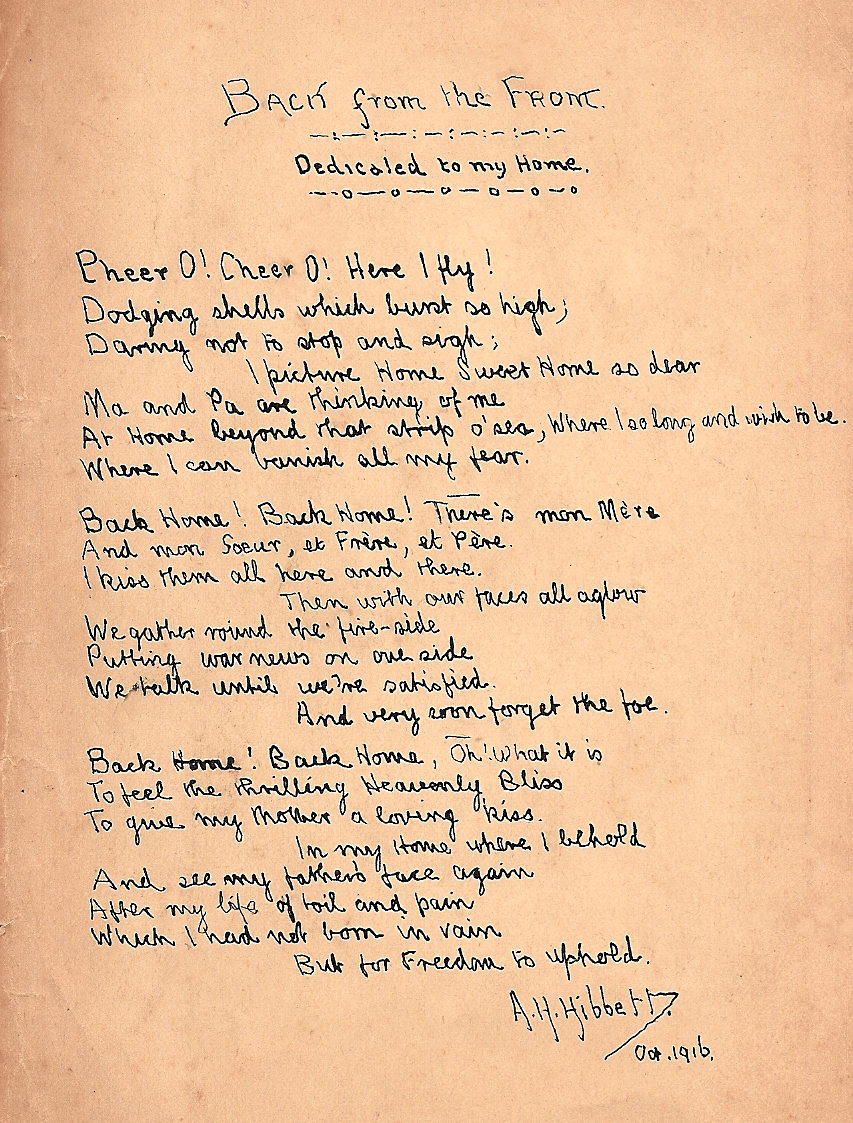 Back from the Front.
Dedicated to my Home.
Pheer O! Cheer O! Here I fly!
Dodging shells which burst so high;
Daring not to stop and sigh;
I picture Home Sweet Home so dear
Ma and Pa are thinking of me
At Home beyond that strip o'sea, Where I so long and wish to be.
Where I can banish all my fear.
Back Home! Back Home! There's mon Mère
And mon Soeur, et Frère, et Père.
I kiss them all here and there.
Then with our faces all aglow
We gather round the fire-side
Putting war news on one side
We talk until we're satisfied.
And very soon forget the foe.
Back Home! Back Home, Oh! What it is
To feel the thrilling Heavenly Bliss
To give my Mother a loving kiss.
In my Home where I behold
And see my father's face again
After my life of toil and pain
Which I had not born in vain
But for Freedom to uphold.
A.H. Hibbett.
Oct. 1916.